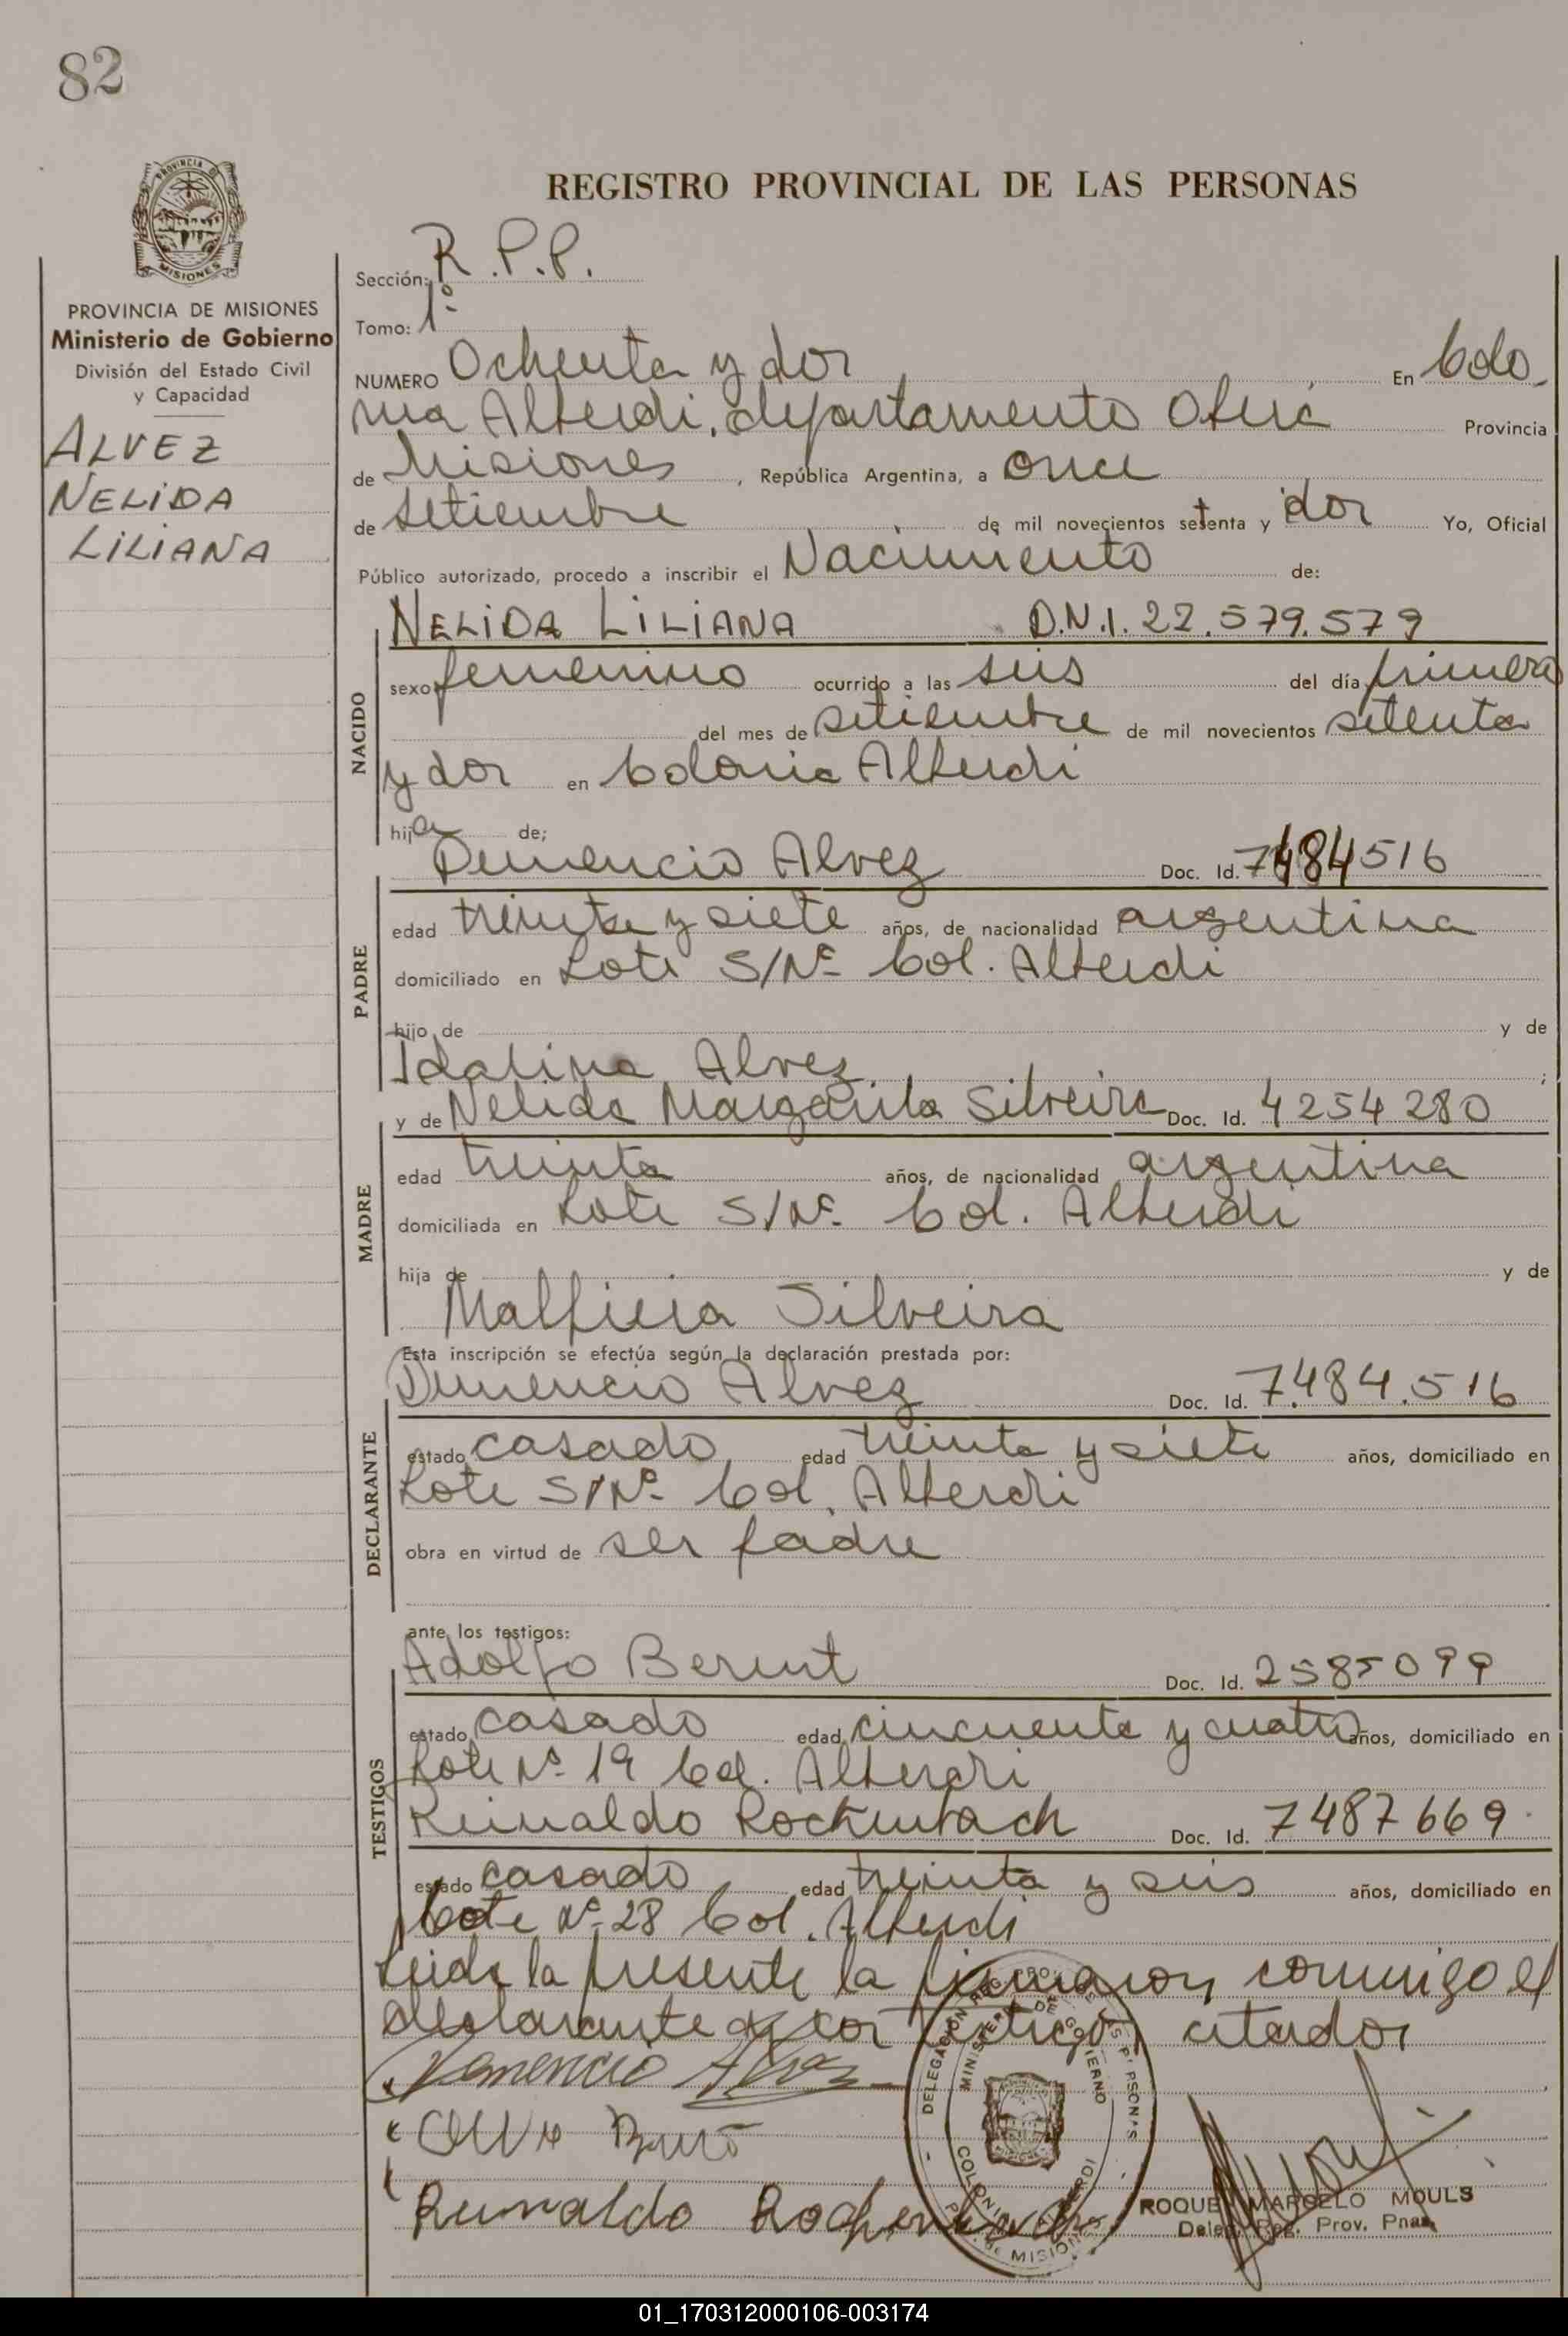 82
PROVINCIA DE
MISIONES
REGISTRO PROVINCIAL DE LAS PERSONAS
PROVINCIA DE MISIONES
Ministerio de Gobierno
División del Estado Civil
y Capacidad
ALVEZ
NELIDA
LILIANA
Sección: R.P.P.
Tomo: 1º
NUMERO Ochenta y dos En Colo
nia Alberdi, departamento Oberá Provincia
de Misiones, República Argentina, a once
de setiembre de mil novecientos setenta y dos Yo, Oficial
Público autorizado, procedo a inscribir el Nacimiento de:
NELIDA LILIANA D.N.I. 22.579.579
NACIDO
sexo femenino ocurrido a las seis del día primero
del mes de setiembre de mil novecientos setenta
y dos en Colonia Alberdi
hija de;
Demencio Alvez Doc. Id. 7484516
PADRE
edad treinta y siete años, de nacionalidad argentina
domiciliado en Lote S/Nº Col. Alberdi
hijo de y de
Idalina Alvez ;
y de Nelida Margarita Silveira Doc. Id. 4254280
MADRE
edad treinta años, de nacionalidad argentina
domiciliada en Lote S/Nº Col. Alberdi
hija de y de
Silveira
Esta inscripción se efectúa según la declaración prestada por:
Demencio Alvez Doc. Id. 7.484.516
DECLARANTE
estado casado edad treinta y siete años, domiciliado en
Lote S/Nº Col. Alberdi
obra en virtud de ser padre
ante los testigos:
Adolfo Berent Doc. Id. 2585099
TESTIGOS
estado casado edad cincuenta y cuatro años, domiciliado en
Lote Nº 19 Col. Alberdi
Reinaldo Rockenbach Doc. Id. 7487669
estado casado edad treinta y seis años, domiciliado en
Lote Nº 28 Col. Alberdi
Leida la presente la firmaron conmigo el
declarante y los testigos citados
Demencio Alvez
Reinaldo
DELEGACION REG. PROV. DE LAS PERSONAS
MINISTERIO DE GOBIERNO
COLONIA ALBERDI
MISIONES
ROQUE MARCELO MOULS
Deleg. Reg. Prov. Pnas.
01_170312000106-003174